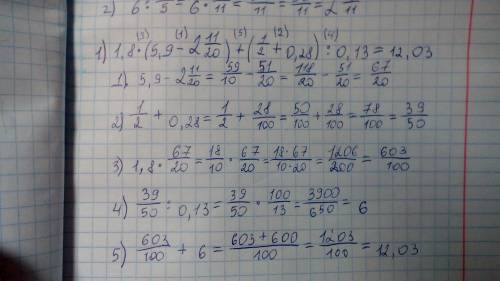 2) 6 : 5 = 6 · 11 11 11 = 2 11
(3) (1) (5) (2) (4)
1) 1,8 · (5,9 - 2 11/20) + (1/2 + 0,28) : 0,13 = 12,03
1) 5,9 - 2 11/20 = 59/10 - 51/20 = 118/20 - 51/20 = 67/20
2) 1/2 + 0,28 = 1/2 + 28/100 = 50/100 + 28/100 = 78/100 = 39/50
3) 1,8 · 67/20 = 18/10 · 67/20 = 18·67/10·20 = 1206/200 = 603/100
4) 39/50 : 0,13 = 39/50 · 100/13 = 3900/650 = 6
5) 603/100 + 6 = 603+600/100 = 1203/100 = 12,03